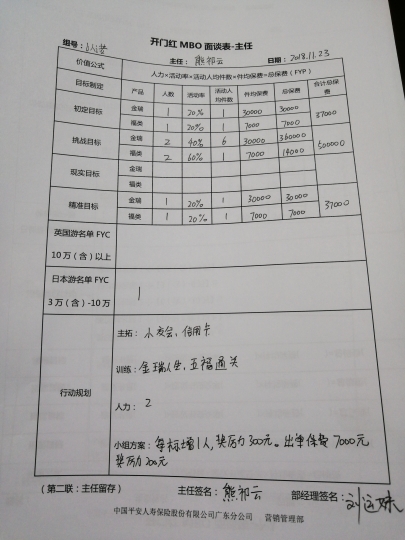 开门红 MBO 面谈表-主任
组号: 主任: 熊祁云 日期: 2018.11.23
价值公式 人力×活动率×活动人均件数×件均保费=总保费(FYP)
目标制定 产品 人数 活动率 活动人均件数 件均保费 总保费 合计总保费
初定目标 金瑞 1 20% 1 30000 30000 37000
福类 1 20% 1 7000 7000
挑战目标 金瑞 2 40% 6 30000 360000 500000
福类 2 60% 1 7000 14000
现实目标 金瑞
福类
精准目标 金瑞 1 20% 1 30000 30000 37000
福类 1 20% 1 7000 7000
英国游名单 FYC
10 万(含)以上
日本游名单 FYC
3 万(含)-10万
1
行动规划
主拓: 小交会, 信用卡
训练: 金瑞人生, 五福通关
人力: 2
小组方案: 每标增1人, 奖厉力300元。出单保费7000元
奖历力200元
(第二联:主任留存) 主任签名: 熊祁云 部经理签名:
中国平安人寿保险股份有限公司广东分公司 营销管理部